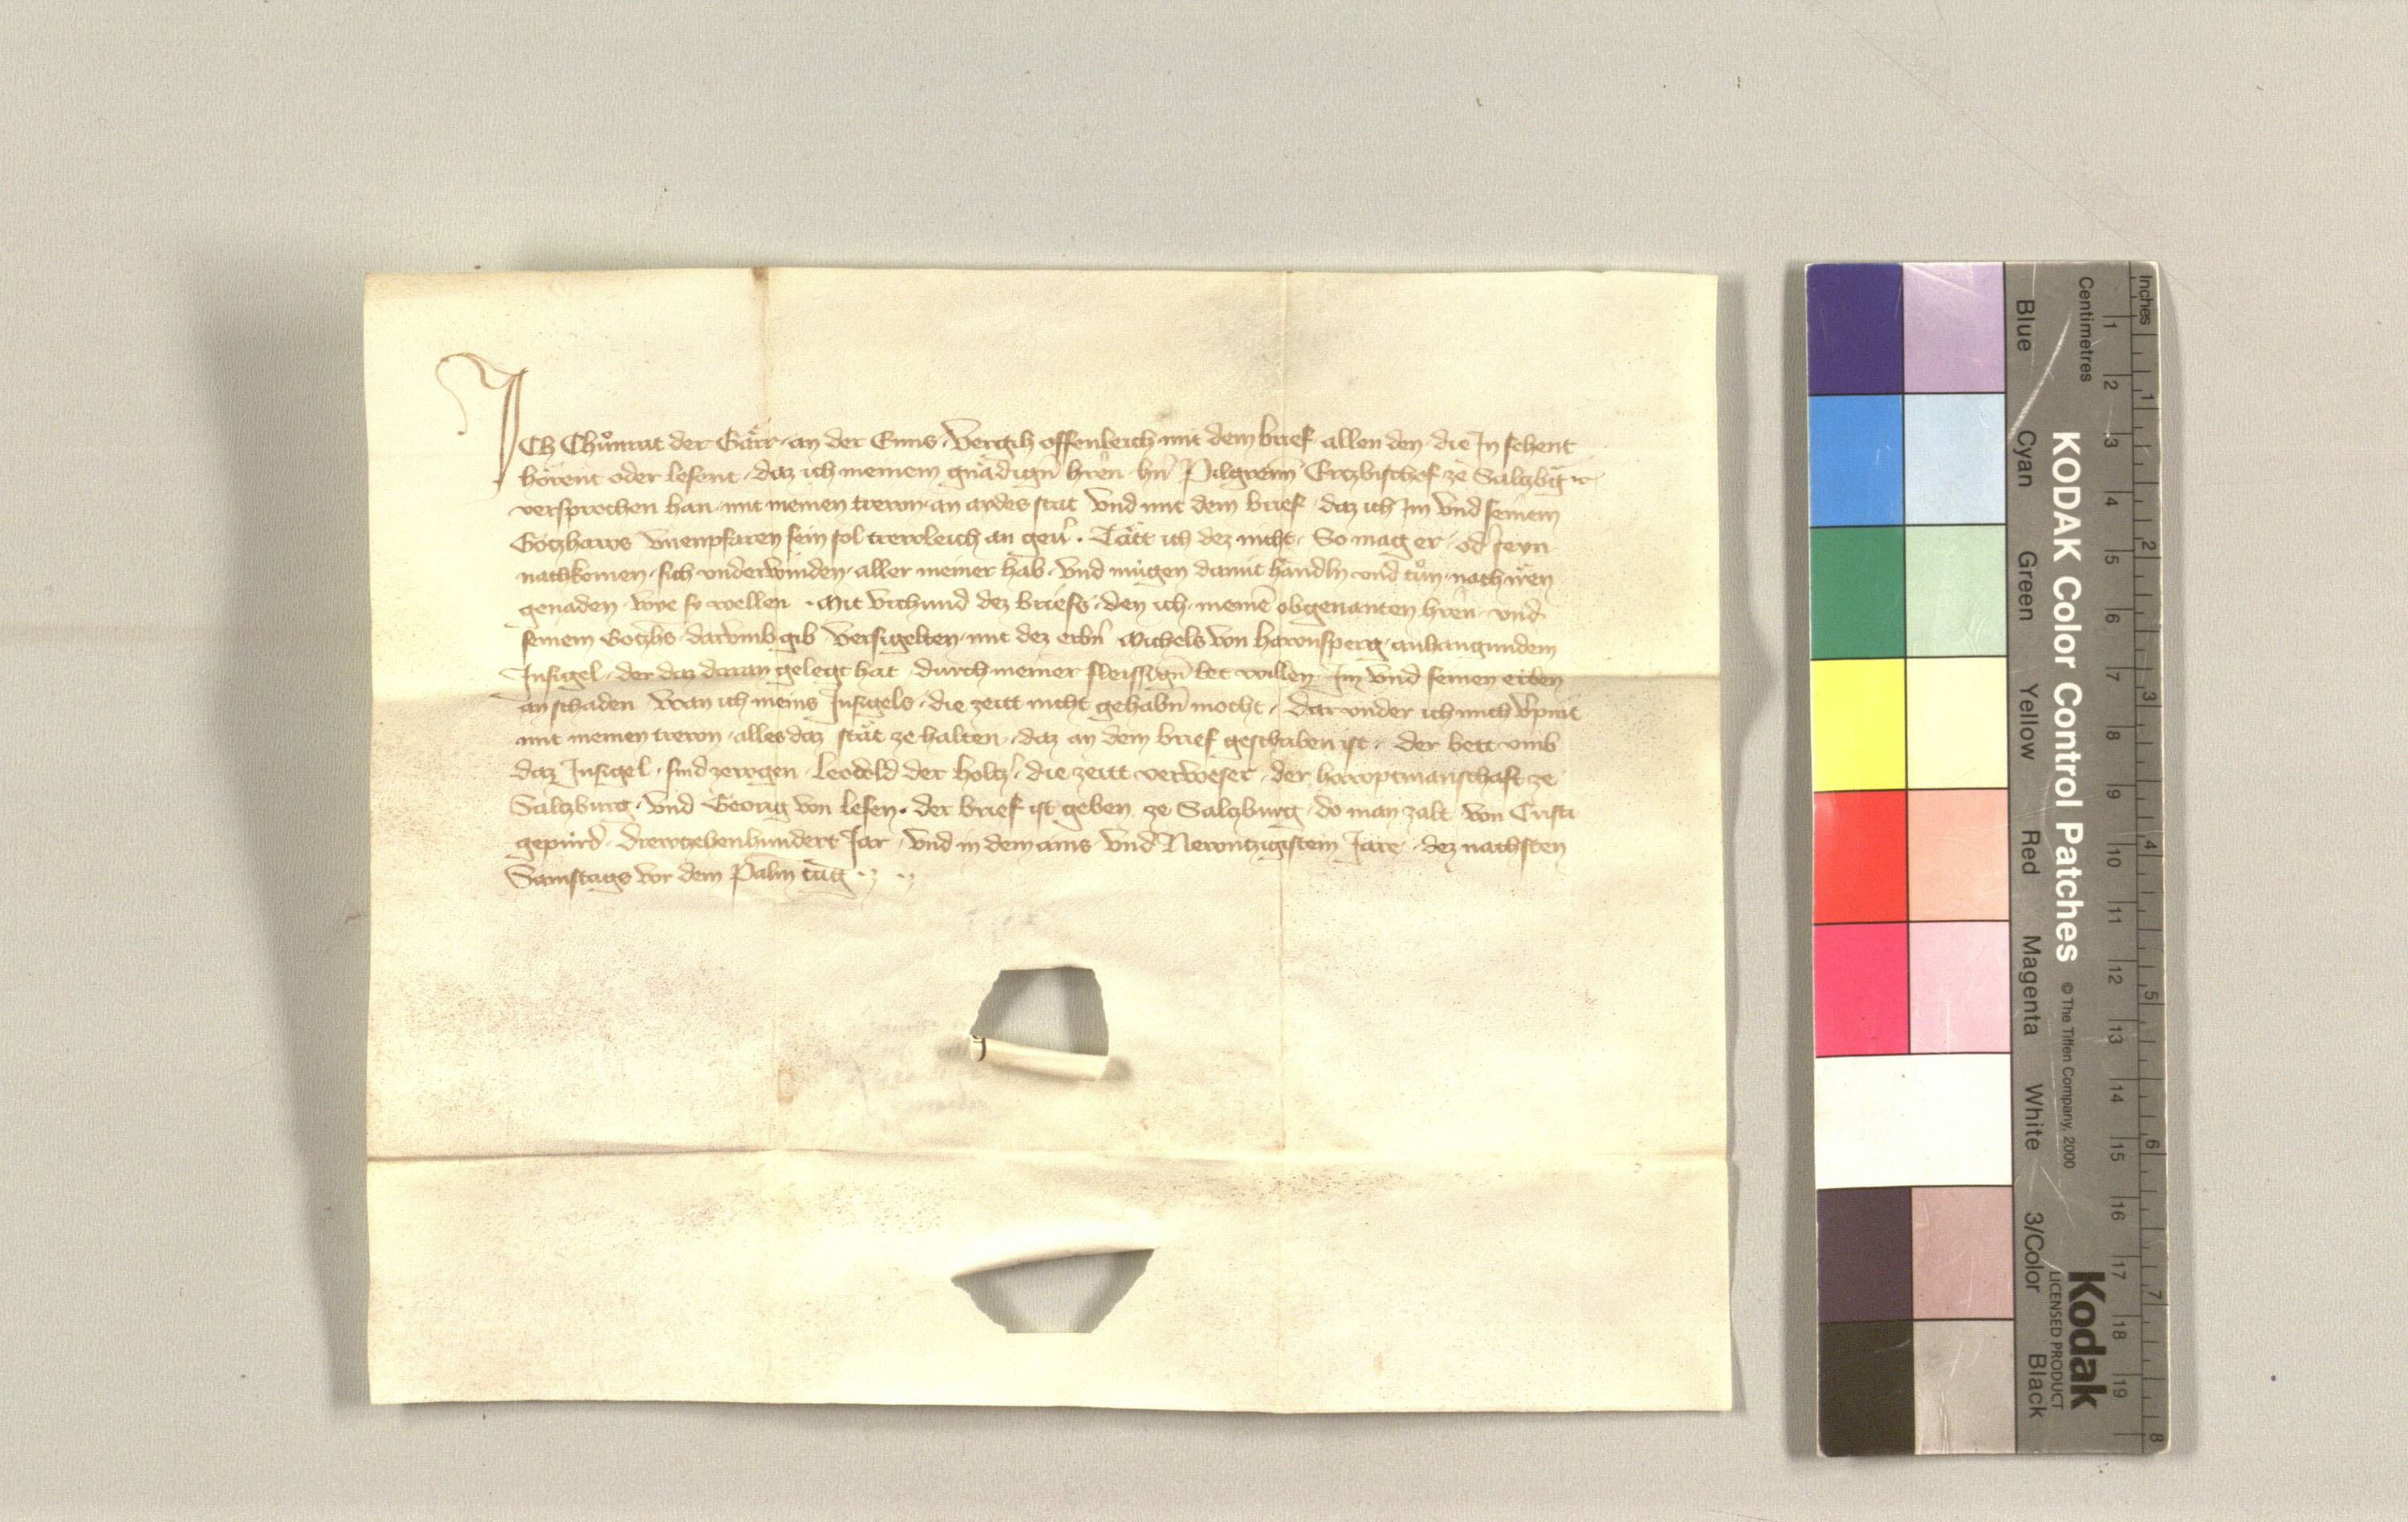 ICh Chůnrat der Gärr an der Enns Vergih offenleich mit dem brief allen den die In sehent
hörent oder lesent daz ich meinem gnädign hren hn Pilgreim Ertzbischof ze Saltzbg
versprochen han mit meinen trewn an aydes stat Vnd mit dem brief daz ich Im vnd seinem
Gotzhaws vnenpfaren sein sol trewleich an geu. Tätt ich dez nicht So mag er od seyn
nachkomen sich vnderwinden aller meiner hab vnd mügen damit handln vnd tůn nach iren
genaden wye sy wellen Mit vrchund dez briefs den ich meinē obgenanten hren vnd
seinem Gotzhs darvmb gib Versigelten mit dez erbn Michels von hawnsperg anhangundem
Insigel der daz daran gelegt hat durch meiner fleissign bet willen Im vnd seinen erben
an schaden wan ich meins Insigels die zeitt nicht gehabn mocht Dar vnder ich mich vpint
mit meinen trewn alles daz stät ze halten daz an dem brief geschriben ist der bett vmb
daz Insigel sind zewgen Leowold der holtz die zeitt verweser der hawptmanschaft ze
Saltzburg vnd Georig von lesen der brief ist geben ze Saltzburg do man zalt von Cristi
gepürd drewtzehenhundert Jar vnd in dem ains vnd Newntzigistem Jare dez nachsten
Samstags vor dem Palm tag
Inches
Centimetres
1 2 3 4 5 6 7 8 9 10 11 12 13 14 15 16 17 18 19
1 2 3 4 5 6 7 8
KODAK Color Control Patches
© The Tiffen Company, 2000
Kodak
LICENSED PRODUCT
Blue Cyan Green Yellow Red Magenta White 3/Color Black